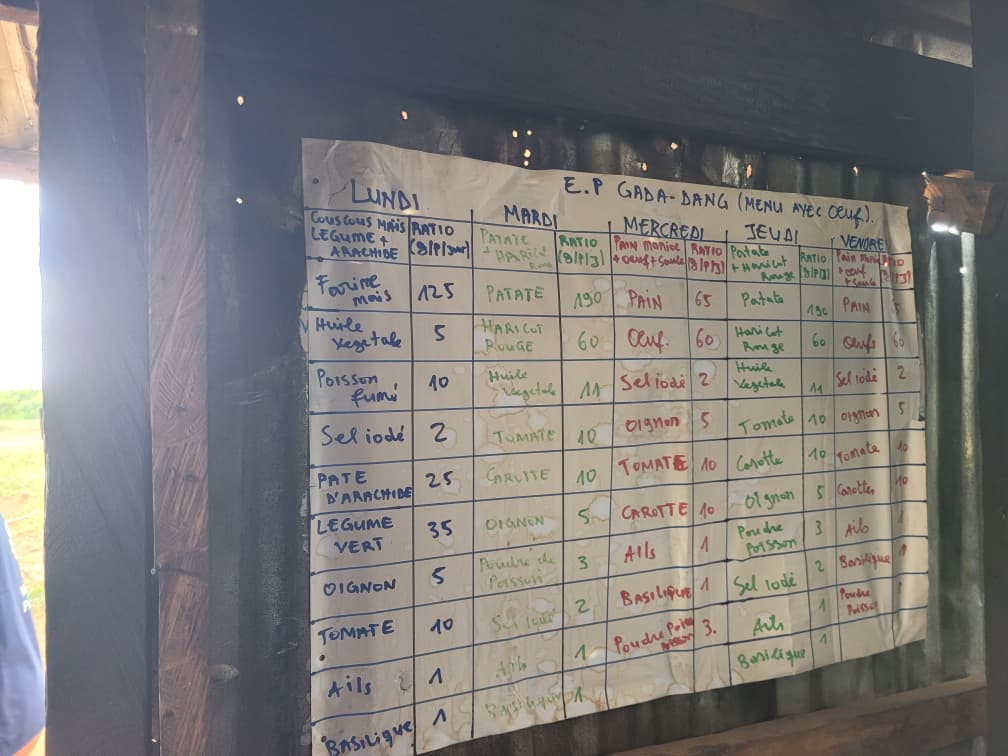 E.P GADA-DANG (MENU AVEC OEUF).
LUNDI
COUSCOUS MAIS
LEGUME +
ARACHIDE
RATIO
(g/P/Jour)
Farine
mais
125
Huile
vegetale
5
Poisson
fumé
10
Sel iodé
2
PATE
D'ARACHIDE
25
LEGUME
VERT
35
OIGNON
5
TOMATE
10
Ails
1
BASILIQUE
1
MARDI
PATATE
+ HARICOT
Rouge
RATIO
(g/P/J)
PATATE
190
HARICOT
ROUGE
60
Huile
Vegetale
11
TOMATE
10
CAROTTE
10
OIGNON
5
Poudre de
Poisson
3
Sel iodé
2
Ails
1
Basilique
1
MERCREDI
PAIN MANIOC
+ oeuf + Sauce
RATIO
(g/P/J)
PAIN
65
Œuf.
60
Sel iodé
2
Oignon
5
TOMATE
10
CAROTTE
10
Ails
1
BASILIQUE
1
Poudre
Poisson
3.
JEUDI
Patate
+ Haricot
Rouge
RATIO
(g/P/J)
Patate
190
Haricot
Rouge
60
Huile
Vegetale
11
Tomate
10
Carotte
10
Oignon
5
Poudre
Poisson
3
Sel iodé
2
Ails
1
Basilique
1
VENDRE
Pain Manioc
+ oeuf
+ Sauce
PAIN
Œufs
60
Sel iodé
2
Oignon
5
Tomate
10
Carottes
10
Ails
1
Basilique
1
Poudre
Poisson